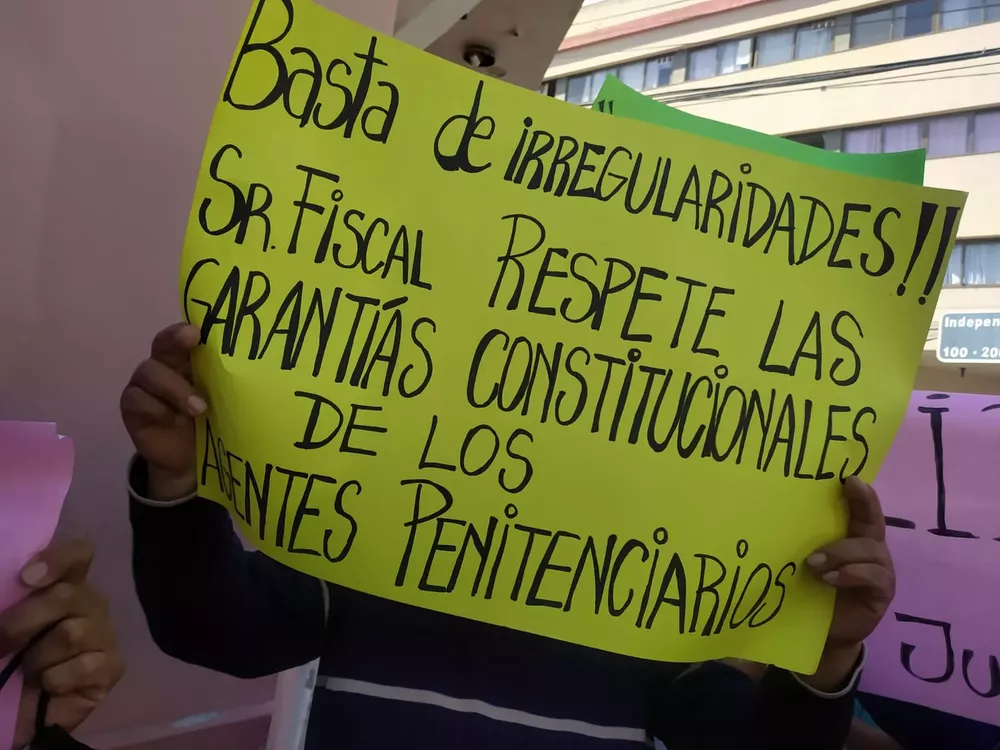 Basta de iRREGULARiDADES!!
SR. FiSCAL RESPETE LAS
GARANTíÁS CONSTiTUCiONALES
DE LOS
AGENTES PENiTENCiARiOS
Indepen
100 - 20
Ju